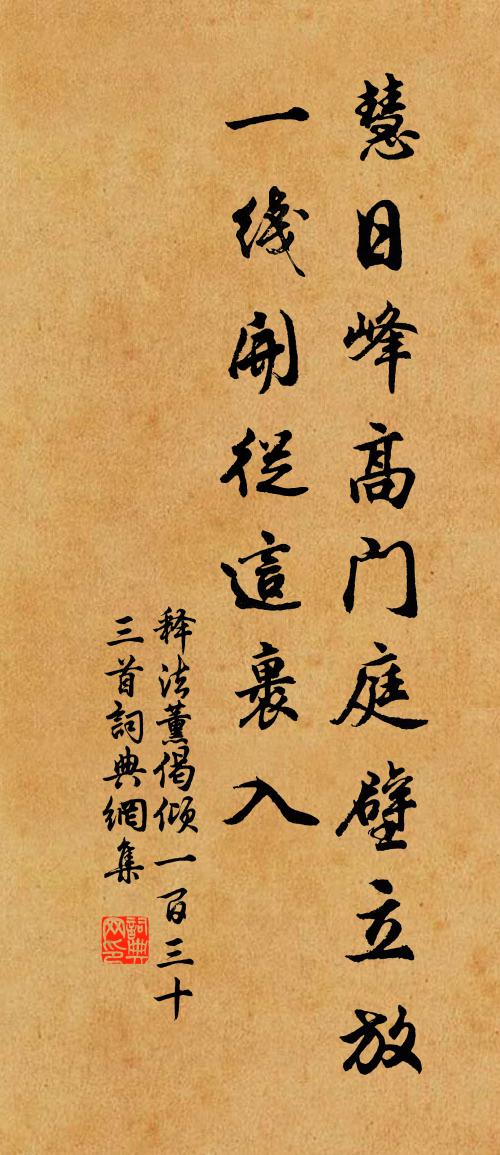 慧日峰高门庭壁立放
一线開從這裹入
释法薰偈倾一百三十
三首詞典網集
詞典
网印